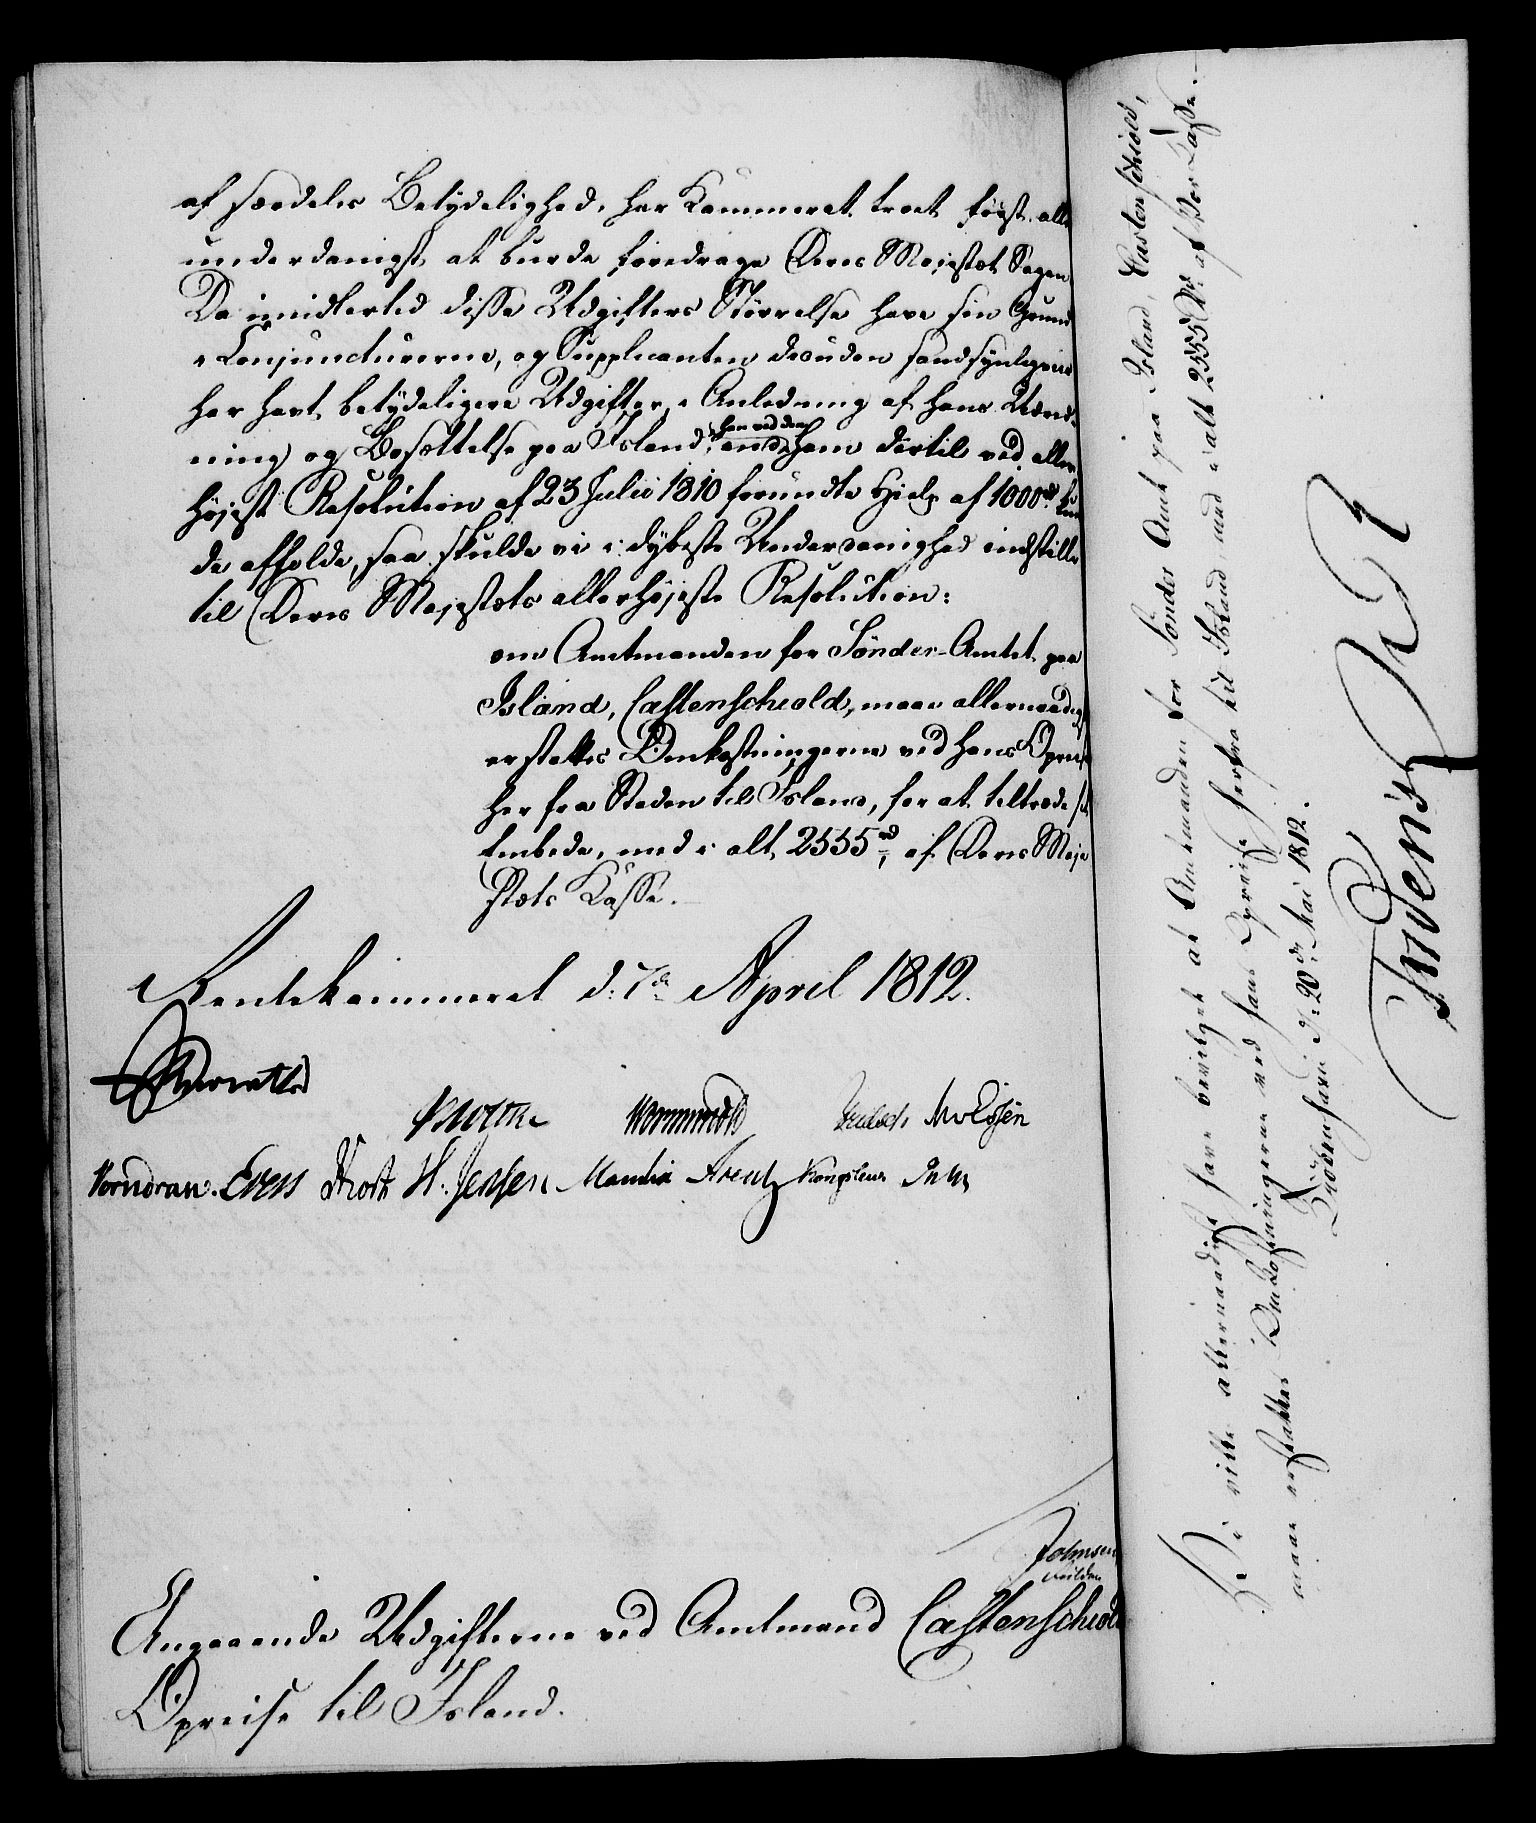 af særdeles Betydelighed, har Kammeret troet først aller
underdanigst at burde foredrage Deres Majestæt Sagen
Da imidlertid disse Udgifters Størrelse have sin Grund
i Conjuncturerne, og Supplicanten desuden sandsynligviis
har havt betydeligere Udgifter i Anledning af hans Udnæv-
ning og Bosættelse paa Island, end han ved den ham dertil ved aller
højest Resolution af 23 Julii 1810 forundte Hielp af 1000 rd kun
de afholde, saa skulde vi i dybeste Underdanighed indstille
til Deres Majestæts allerhøjeste Resolution:
om Amtmanden for Sønder-Amtet paa
Island, Castenschiold, maae allernaadigst
erstattes Omkostningerne ved hans Opreise
her fra Staden til Island, for at tiltræde sit
Embede, med i alt 2555 rd, af Deres Maje
stæts Kasse.
Rentekammeret d: 7de April 1812.
Wormskiold Knudsen MvEssen
Vorndran. Evers Drost H. Jensen Manthei Arentz
Johnsen
Angaaende Udgifterne ved Amtmand Castenschiold
Opreise til Island.
Vi ville allernaadigst have bevilget at Amtmanden for Sønder Amt paa Island, Castenschiold,
maae erstattes Omkostningerne ved hans Opreise herfra til Island med i alt 2555 Rd. af Vor Kasse.
Kiøbenhavn d: 20de Mai 1812.
Frideric R